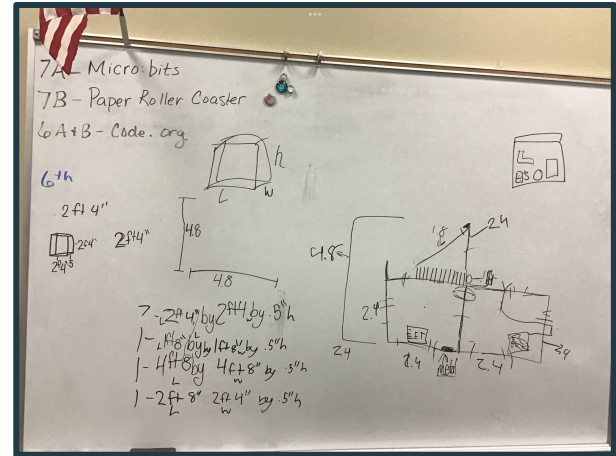 7A - Micro:bits
7B - Paper Roller Coaster
6A+B - Code.org
6th
2ft 4"
2ft4"
h
L
W
4.8
4.8
7 - 2ft 4" by 2ft4 by .5"h
1 - 1ft8" by 1ft8" by .5"h
L
1 - 4ft 8" by 4ft 8" by .5"h
L
W
1 - 2ft 8" 2ft 4" by .5"h
L
W
4.8
1.8
24
2.4
24
2.4
2.4
24